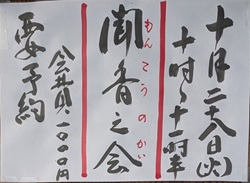 十月二十八日(火)
十時〜十一時半
もんこうのかい
聞香之会
会費一、〇〇〇円
要予約